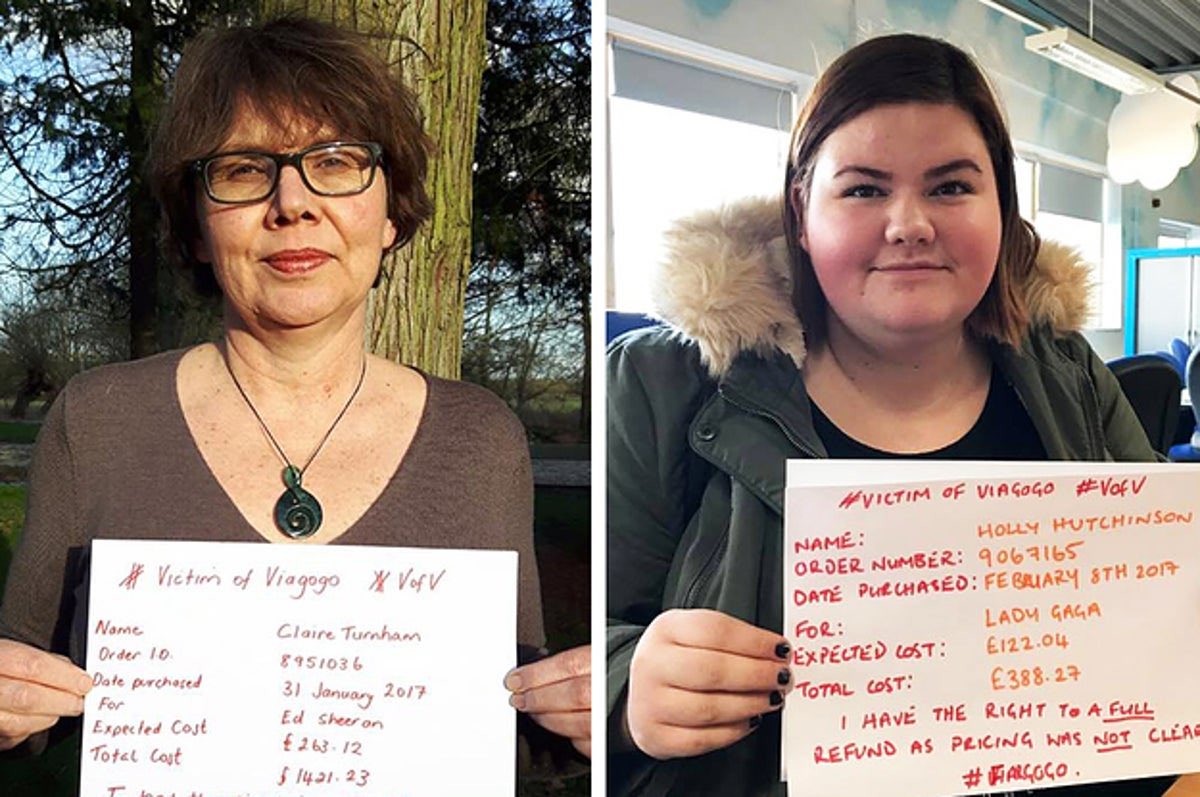 # Victim of Viagogo # VofV
Name Claire Turnham
Order I.D. 8951036
Date purchased 31 January 2017
For Ed Sheeran
Expected Cost £263.12
Total Cost £1421.23
I
#VICTIM OF VIAGOGO #VofV
NAME: HOLLY HUTCHINSON
ORDER NUMBER: 9067165
DATE PURCHASED: FEBRUARY 8TH 2017
FOR: LADY GAGA
EXPECTED COST: £122.04
TOTAL COST: £388.27
I HAVE THE RIGHT TO A FULL
REFUND AS PRICING WAS NOT CLEAR
#FIARGOGO.